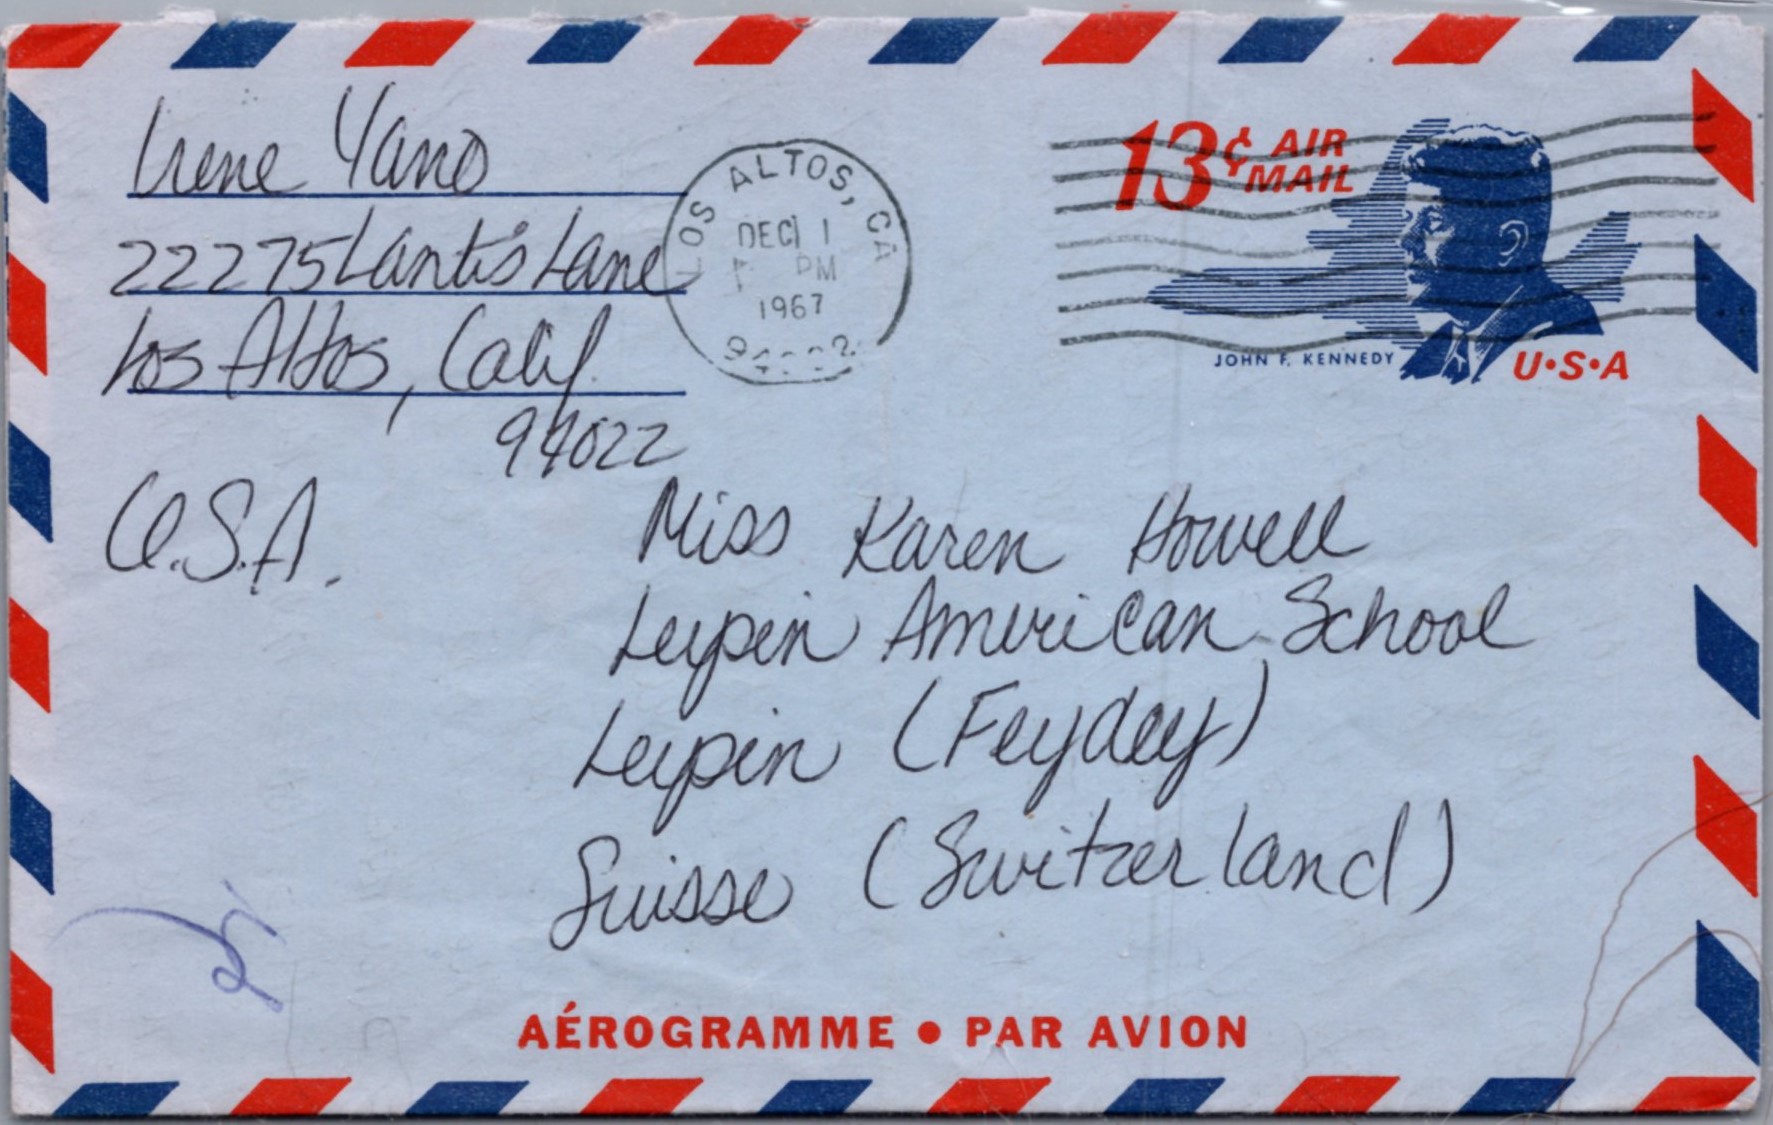 Irene Yano
22275 Lantis Lane
Los Altos, Calif.
94022
U.S.A.
LOS ALTOS, CA
DEC 1
PM
1967
13¢ AIR
MAIL
JOHN F. KENNEDY
U•S•A
Miss Karen Howell
Leypin American School
Leypin (Feydey)
Suisse (Switzerland)
AÉROGRAMME • PAR AVION